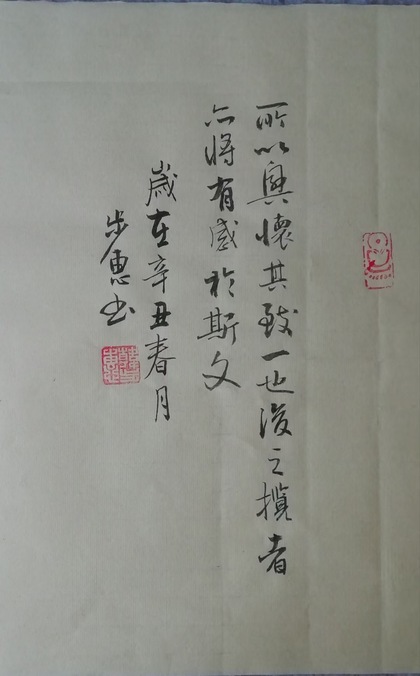 所以興懷其致一也後之攬者
亦將有感於斯文
歲在辛丑春月
步惠书